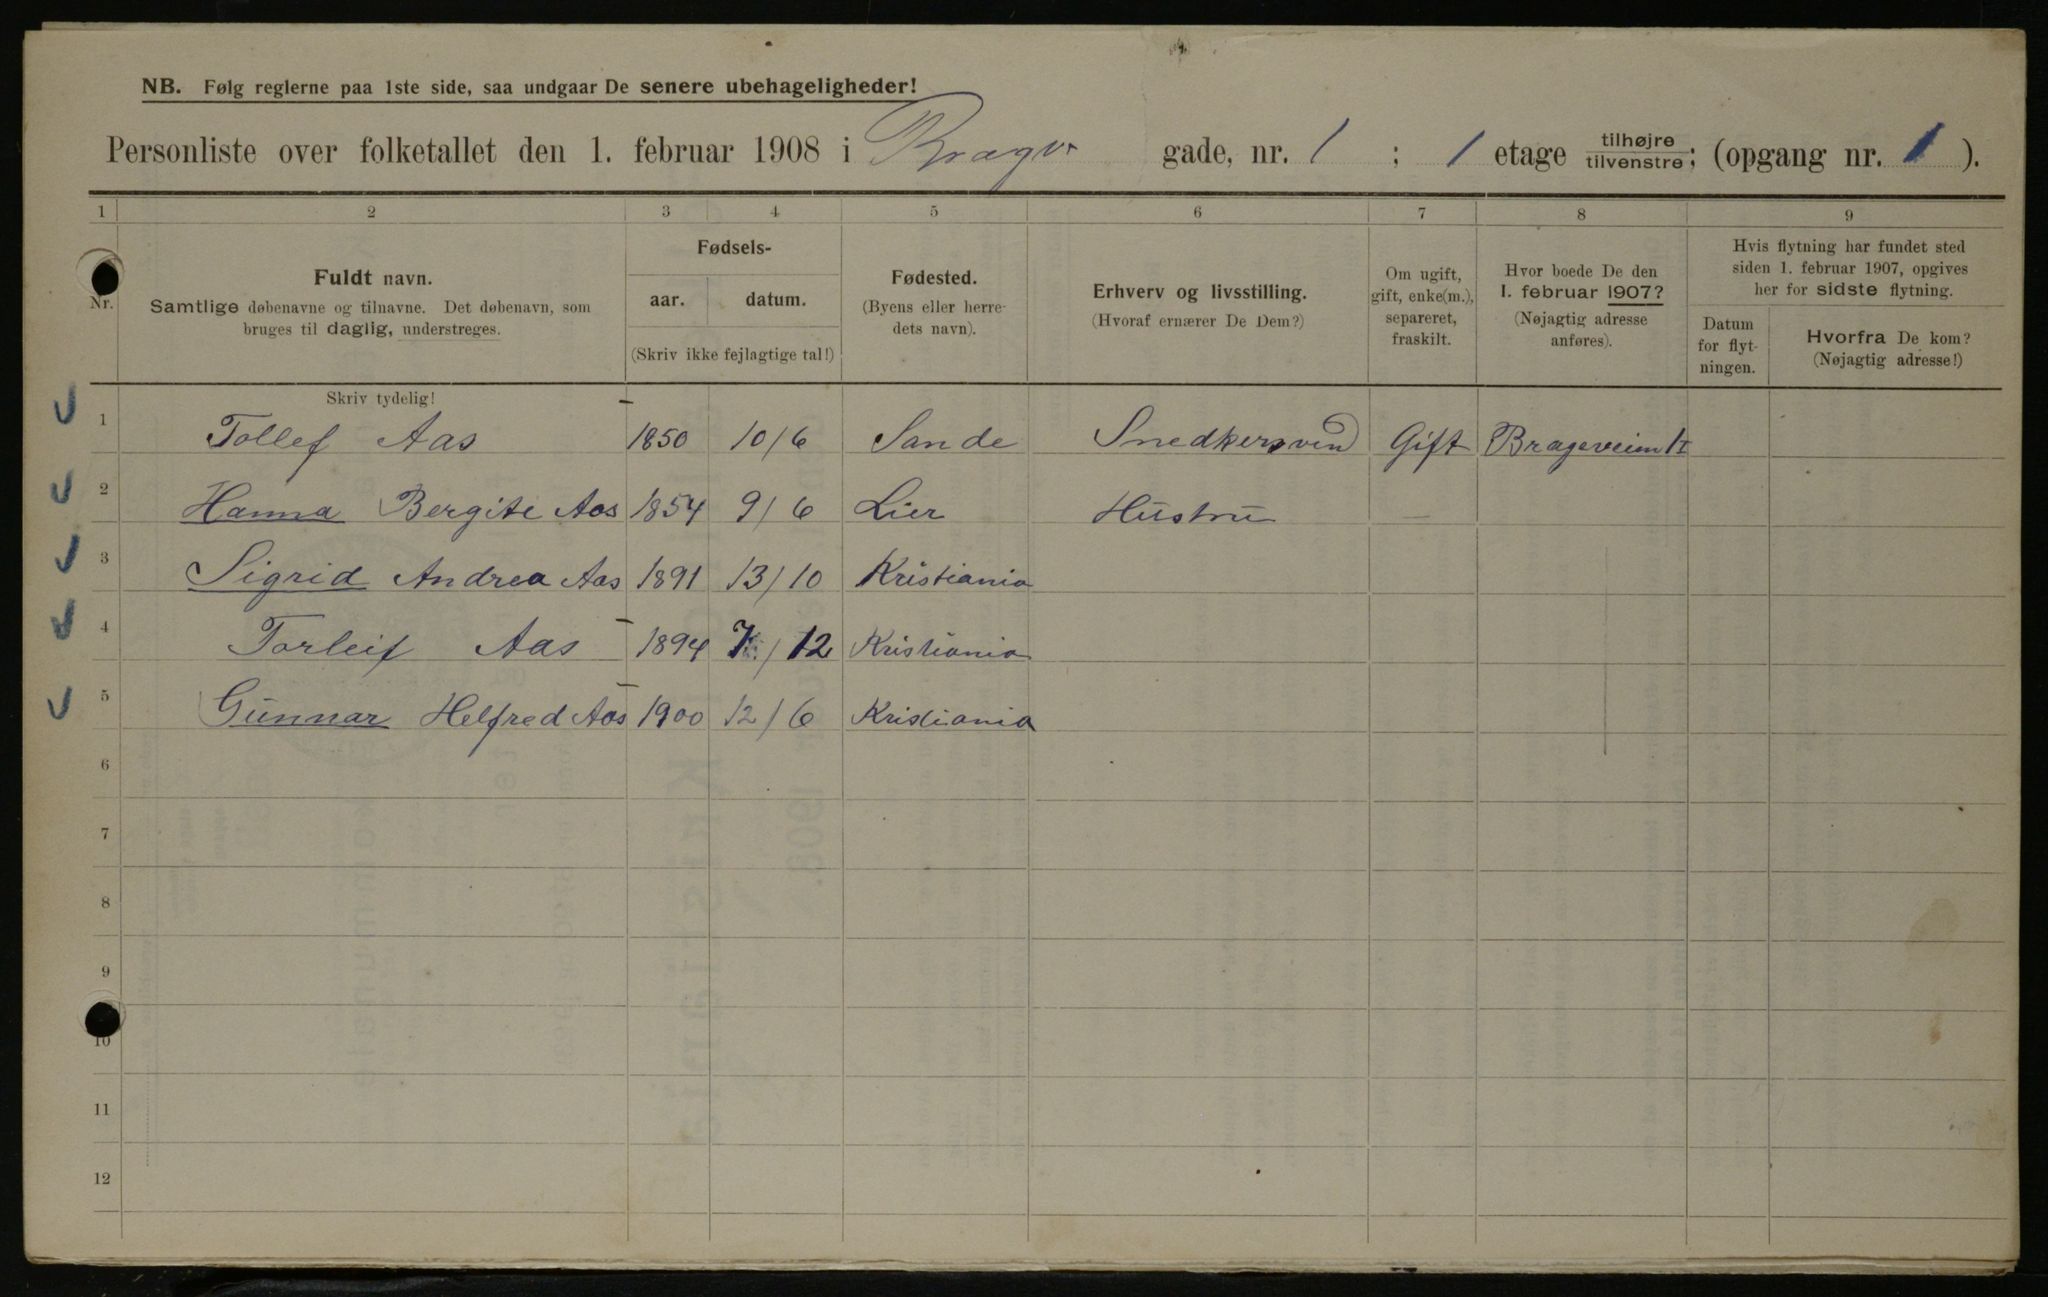 NB. Følg reglerne paa 1ste side, saa undgaar De senere ubehageligheder!
Personliste over folketallet den 1. februar 1908 i Bragev gade, nr. 1 ; 1 etage tilhøjre tilvenstre; (opgang nr. 1 ).
1 2 3 4 5 6 7 8 9
Nr.
Fuldt navn.
Samtlige døbenavne og tilnavne. Det døbenavn, som
bruges til daglig, understreges.
Fødsels-
aar. datum.
(Skriv ikke fejlagtige tal!)
Fødested.
(Byens eller herre-
dets navn).
Erhverv og livsstilling.
(Hvoraf ernærer De Dem?)
Om ugift,
gift, enke(m.),
separeret,
fraskilt.
Hvor boede De den
1. februar 1907?
(Nøjagtig adresse
anføres).
Hvis flytning har fundet sted
siden 1. februar 1907, opgives
her for sidste flytning.
Datum
for flyt-
ningen.
Hvorfra De kom?
(Nøjagtig adresse!)
Skriv tydelig!
1 Tollef Aas 1850 10/6 Sande Snedkersvend Gift Brageveien 1
2 Hanna Bergite Aas 1854 9/6 Lier Hustru —
3 Sigrid Andrea Aas 1891 13/10 Kristiania
4 Torleif Aas 1894 7/12 Kristiania
5 Gunnar Helfred Aas 1900 12/6 Kristiania
6
7
8
9
10
11
12